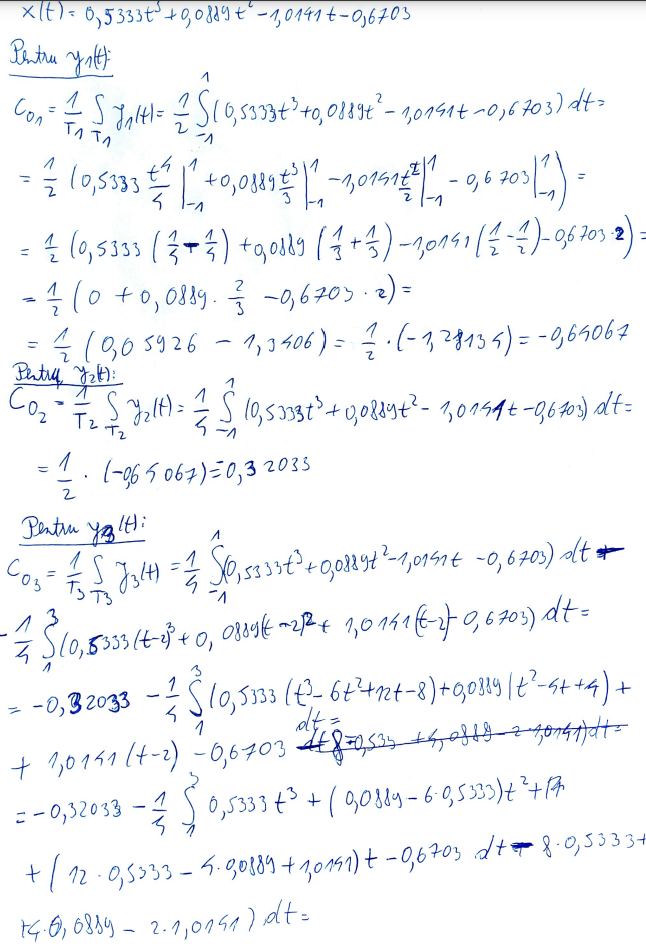 x(t) = 0,5333t³ + 0,0889t² - 1,0141t - 0,6703
Pentru y₁(t):
C₀₁ = 1/T₁ ∫_T₁ y₁(t) = 1/2 ∫₋₁¹ (0,5333t³ + 0,0889t² - 1,0141t - 0,6703) dt =
= 1/2 (0,5333 t⁴/4 |₋₁¹ + 0,0889 t³/3 |₋₁¹ - 1,0141 t²/2 |₋₁¹ - 0,6703 |₋₁¹) =
= 1/2 (0,5333 (1/4 - 1/4) + 0,0889 (1/3 + 1/3) - 1,0141 (1/2 - 1/2) - 0,6703·2) =
= 1/2 (0 + 0,0889 · 2/3 - 0,6703 · 2) =
= 1/2 (0,05926 - 1,3406) = 1/2 · (-1,28134) = -0,64067
Pentru y₂(t):
C₀₂ = 1/T₂ ∫_T₂ y₂(t) = 1/4 ∫₋₁¹ (0,5333t³ + 0,0889t² - 1,0141t - 0,6703) dt =
= 1/2 · (-0,64067) = 0,32033
Pentru y₃(t):
C₀₃ = 1/T₃ ∫_T₃ y₃(t) = 1/4 ∫₋₁¹ (0,5333t³ + 0,0889t² - 1,0141t - 0,6703) dt
- 1/4 ∫₁³ (0,5333(t-2)³ + 0,0889(t-2)² + 1,0141(t-2) - 0,6703) dt =
= -0,32033 - 1/4 ∫₁³ (0,5333 (t³ - 6t² + 12t - 8) + 0,0889 (t² - 4t + 4) +
+ 1,0141 (t-2) - 0,6703 dt =
= -0,32033 - 1/4 ∫₁³ 0,5333 t³ + (0,0889 - 6·0,5333)t² +
+ (12 · 0,5333 - 4·0,0889 + 1,0141) t - 0,6703 dt - 8·0,5333 +
+4·0,0889 - 2·1,0141) dt =